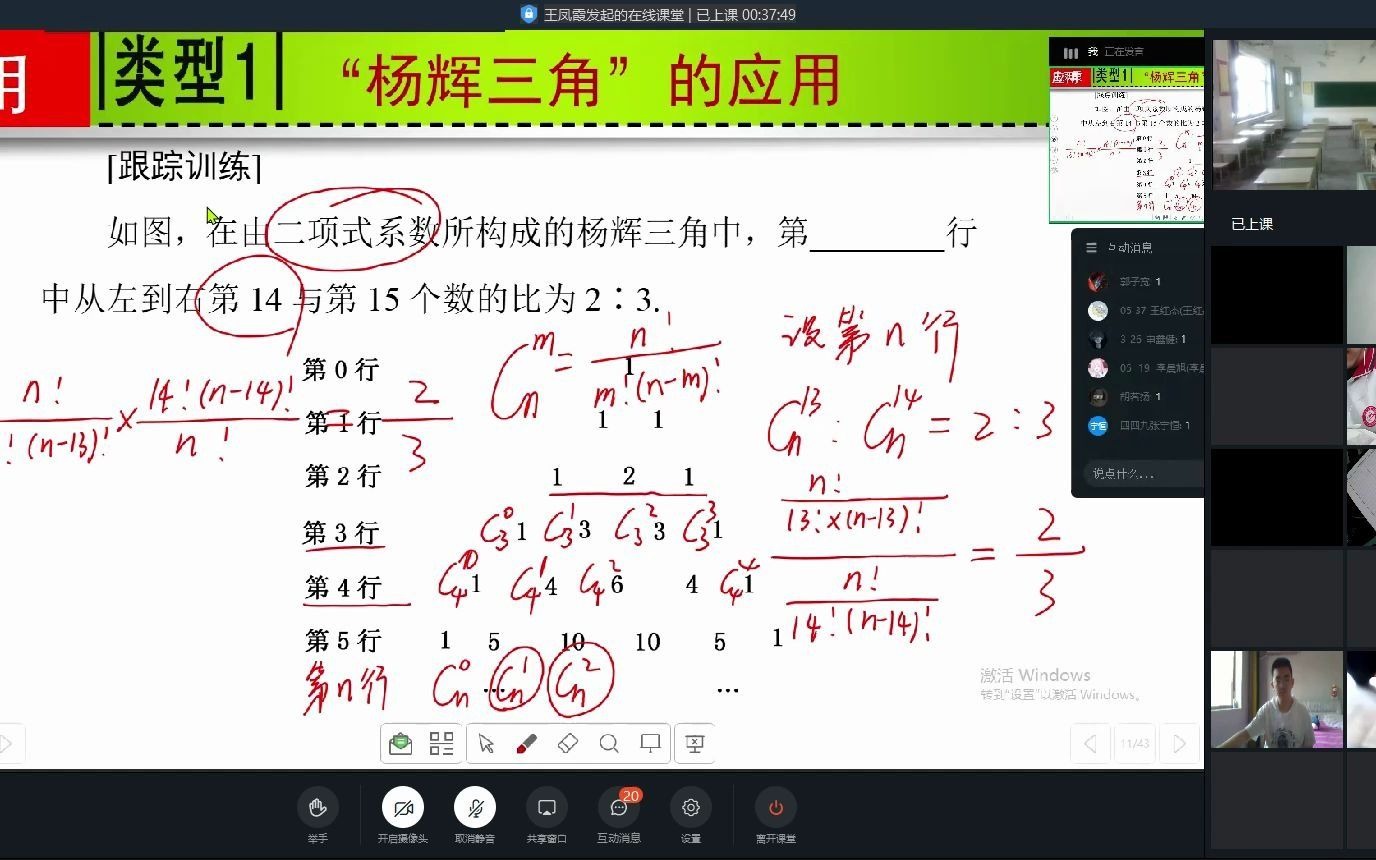 王凤霞发起的在线课堂 | 已上课 00:37:49
用 类型1 “杨辉三角”的应用
[跟踪训练]
如图，在由二项式系数所构成的杨辉三角中，第________行
中从左到右第 14 与第 15 个数的比为 2∶3.
设第 n 行
C_n^m = n! / m!(n-m)!
n! / !(n-13)! × 14!(n-14)! / n! = 2/3
C_n^13 : C_n^14 = 2:3
n! / 13!×(n-13)!
n! / 14!(n-14)!
= 2/3
第 0 行 1
第 1 行 1 1
第 2 行 1 2 1
第 3 行 C_3^0 1 C_3^1 3 C_3^2 3 C_3^3 1
第 4 行 C_4^0 1 C_4^1 4 C_4^2 6 4 C_4^4 1
第 5 行 1 5 10 10 5 1
第n行 C_n^0 … C_n^1 C_n^2 …
激活 Windows
转到“设置”以激活 Windows。
11/43
我 正在发言
类型1 “杨辉三角”
互动消息
郭子宽: 1
胡若扬: 1
四四九张宁恒: 1
宁恒
说点什么...
已上课
举手
开启摄像头
取消静音
共享窗口
20
互动消息
设置
离开课堂